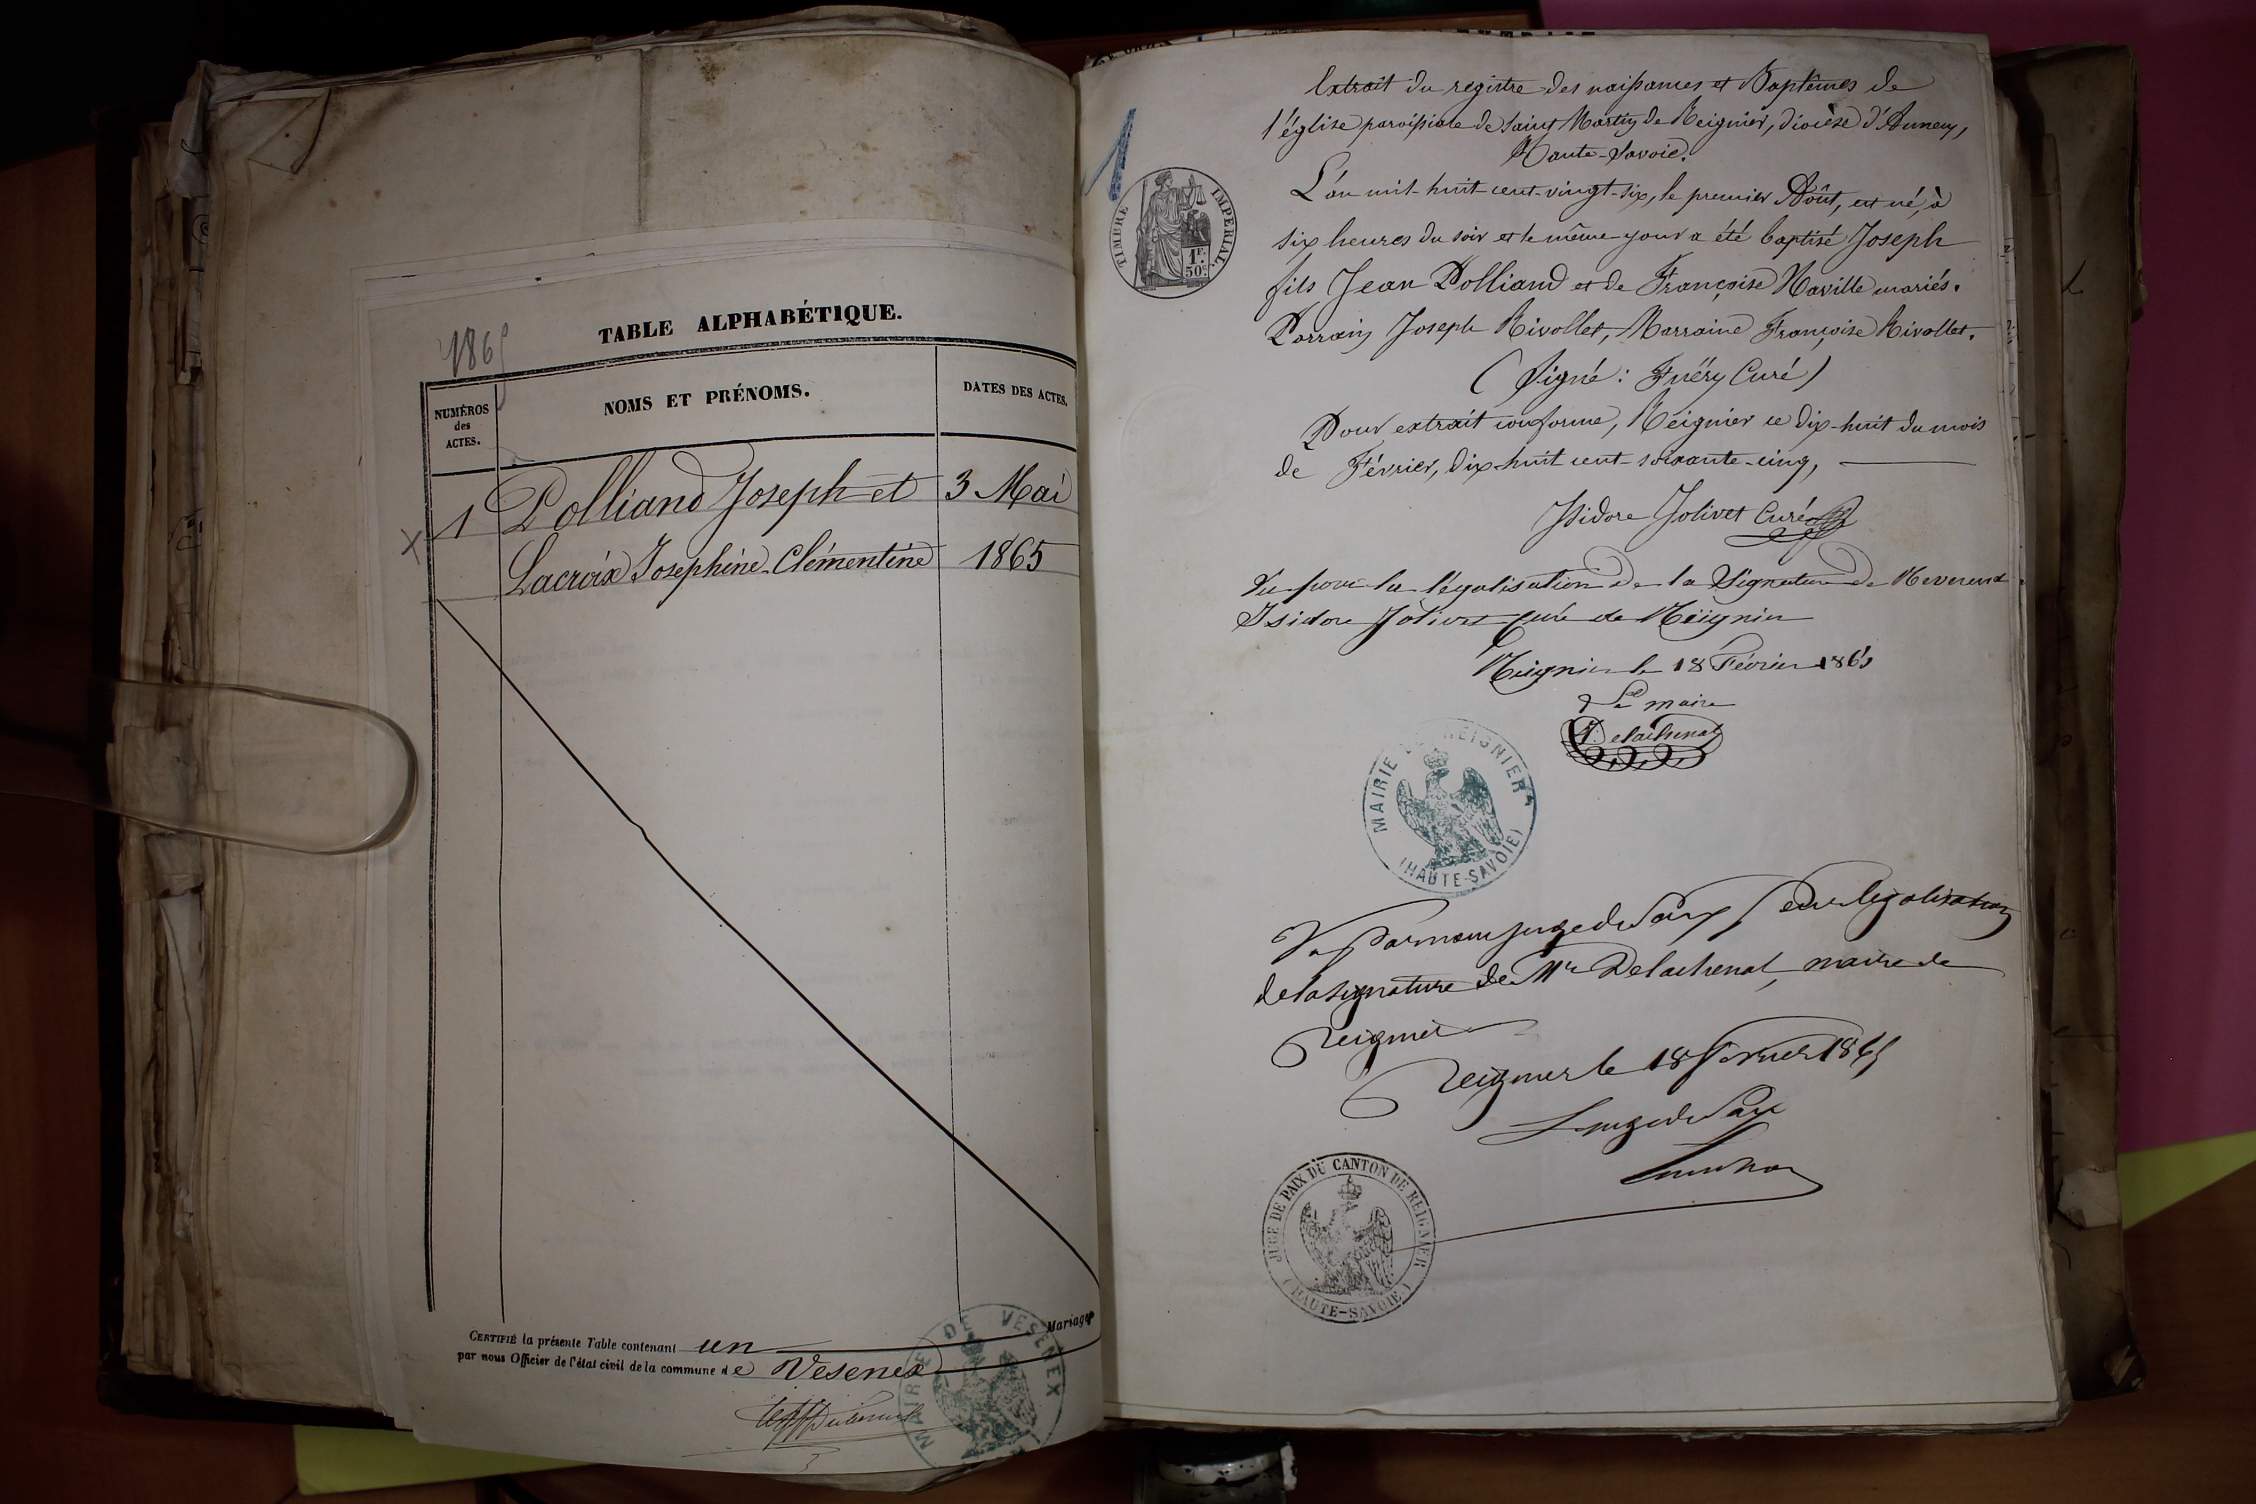 1865
TABLE ALPHABÉTIQUE.
NUMÉROS des ACTES.
NOMS ET PRÉNOMS.
DATES DES ACTES.
1 Polliand Joseph et 3 Mai
Lacroix Josephine Clémentine 1865
CERTIFIÉ la présente Table contenant un Mariage
par nous Officier de l'état civil de la commune de Vesenex
MAIRIE DE VESENEX
1
Extrait du registre des naissances et Baptêmes de
l'église paroissiale de Saint Martin de Reignier, diocèse d'Annecy,
Haute-Savoie.
TIMBRE IMPERIAL.
1F. 50c.
L'an mil-huit-cent-vingt-six, le premier Août, est né, à
six heures du soir et le même jour a été baptisé Joseph
fils Jean Polliand et de Françoise Naville mariés.
Parrain Joseph Rivollet, Marraine Françoise Rivollet.
(Signé: Fuëry Curé)
Pour extrait conforme, Reignier ce dix-huit du mois
de Février, dix-huit cent-soixante-cinq,
Isidore Jolivet Curé
Vu pour la légalisation de la Signature de Reverend
Isidore Jolivet curé de Reignier
Reignier le 18 Février 1865
Le maire
Delachenal
MAIRIE DE REIGNIER
(HAUTE-SAVOIE)
Vu par nous juge de Paix pour légalisation
de la signature de Mr Delachenal, maire de
Reignier
Reignier le 18 février 1865
Le juge de Paix
JUGE DE PAIX DU CANTON DE REIGNIER
(HAUTE-SAVOIE)